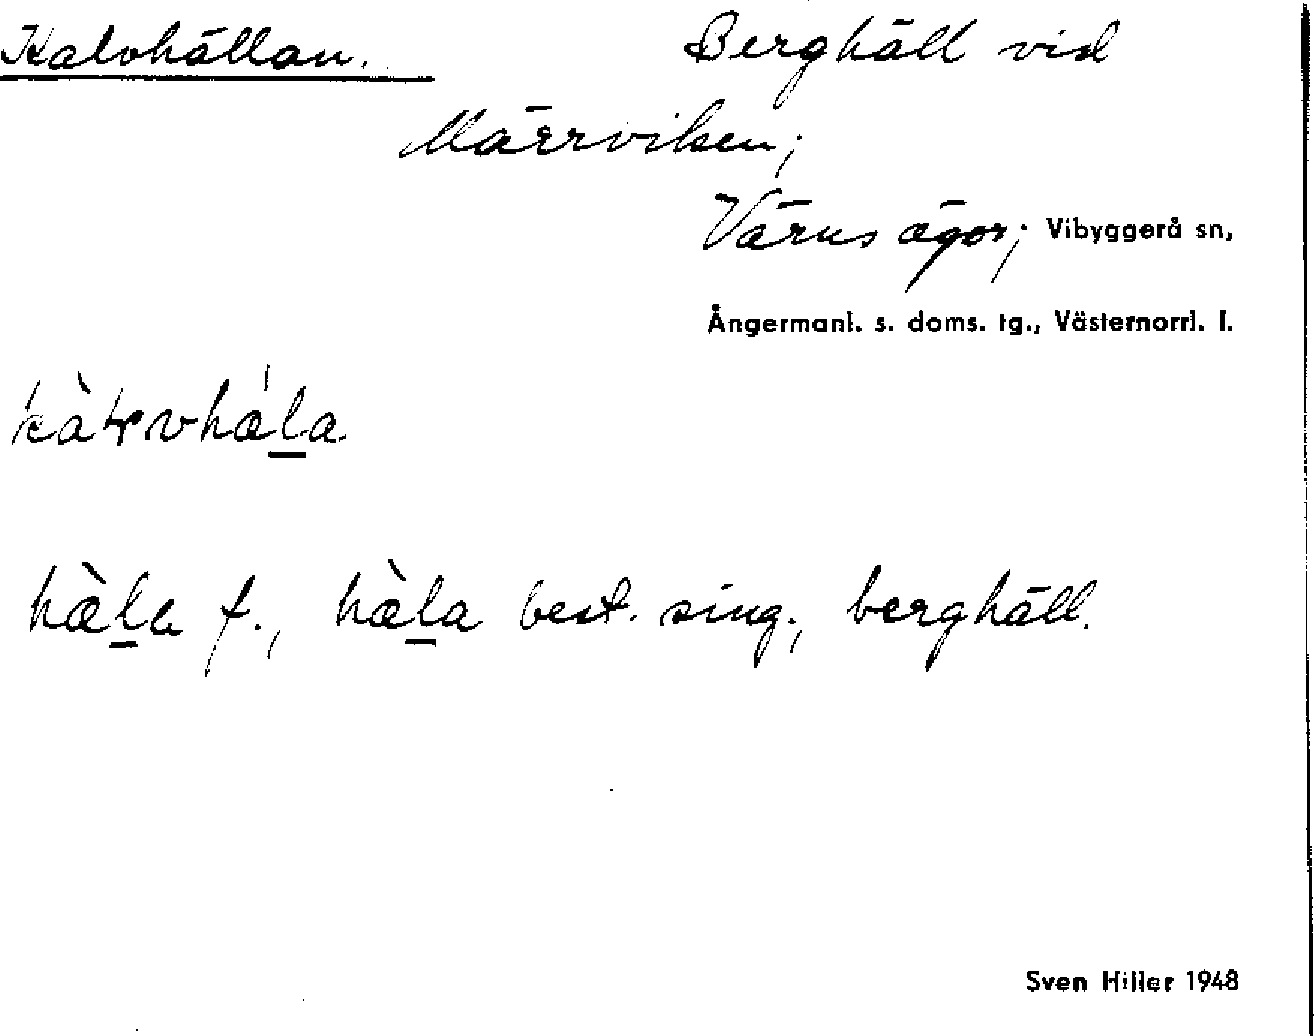 Kalvhällan. Berghäll vid
Märrviken;
Värns ägor; Vibyggerå sn,
Ångermanl. s. doms. tg., Västernorrl. l.
kàɽvhæ̀la
hæ̀la f., hæ̀la best. sing., berghäll.
Sven Hiller 1948